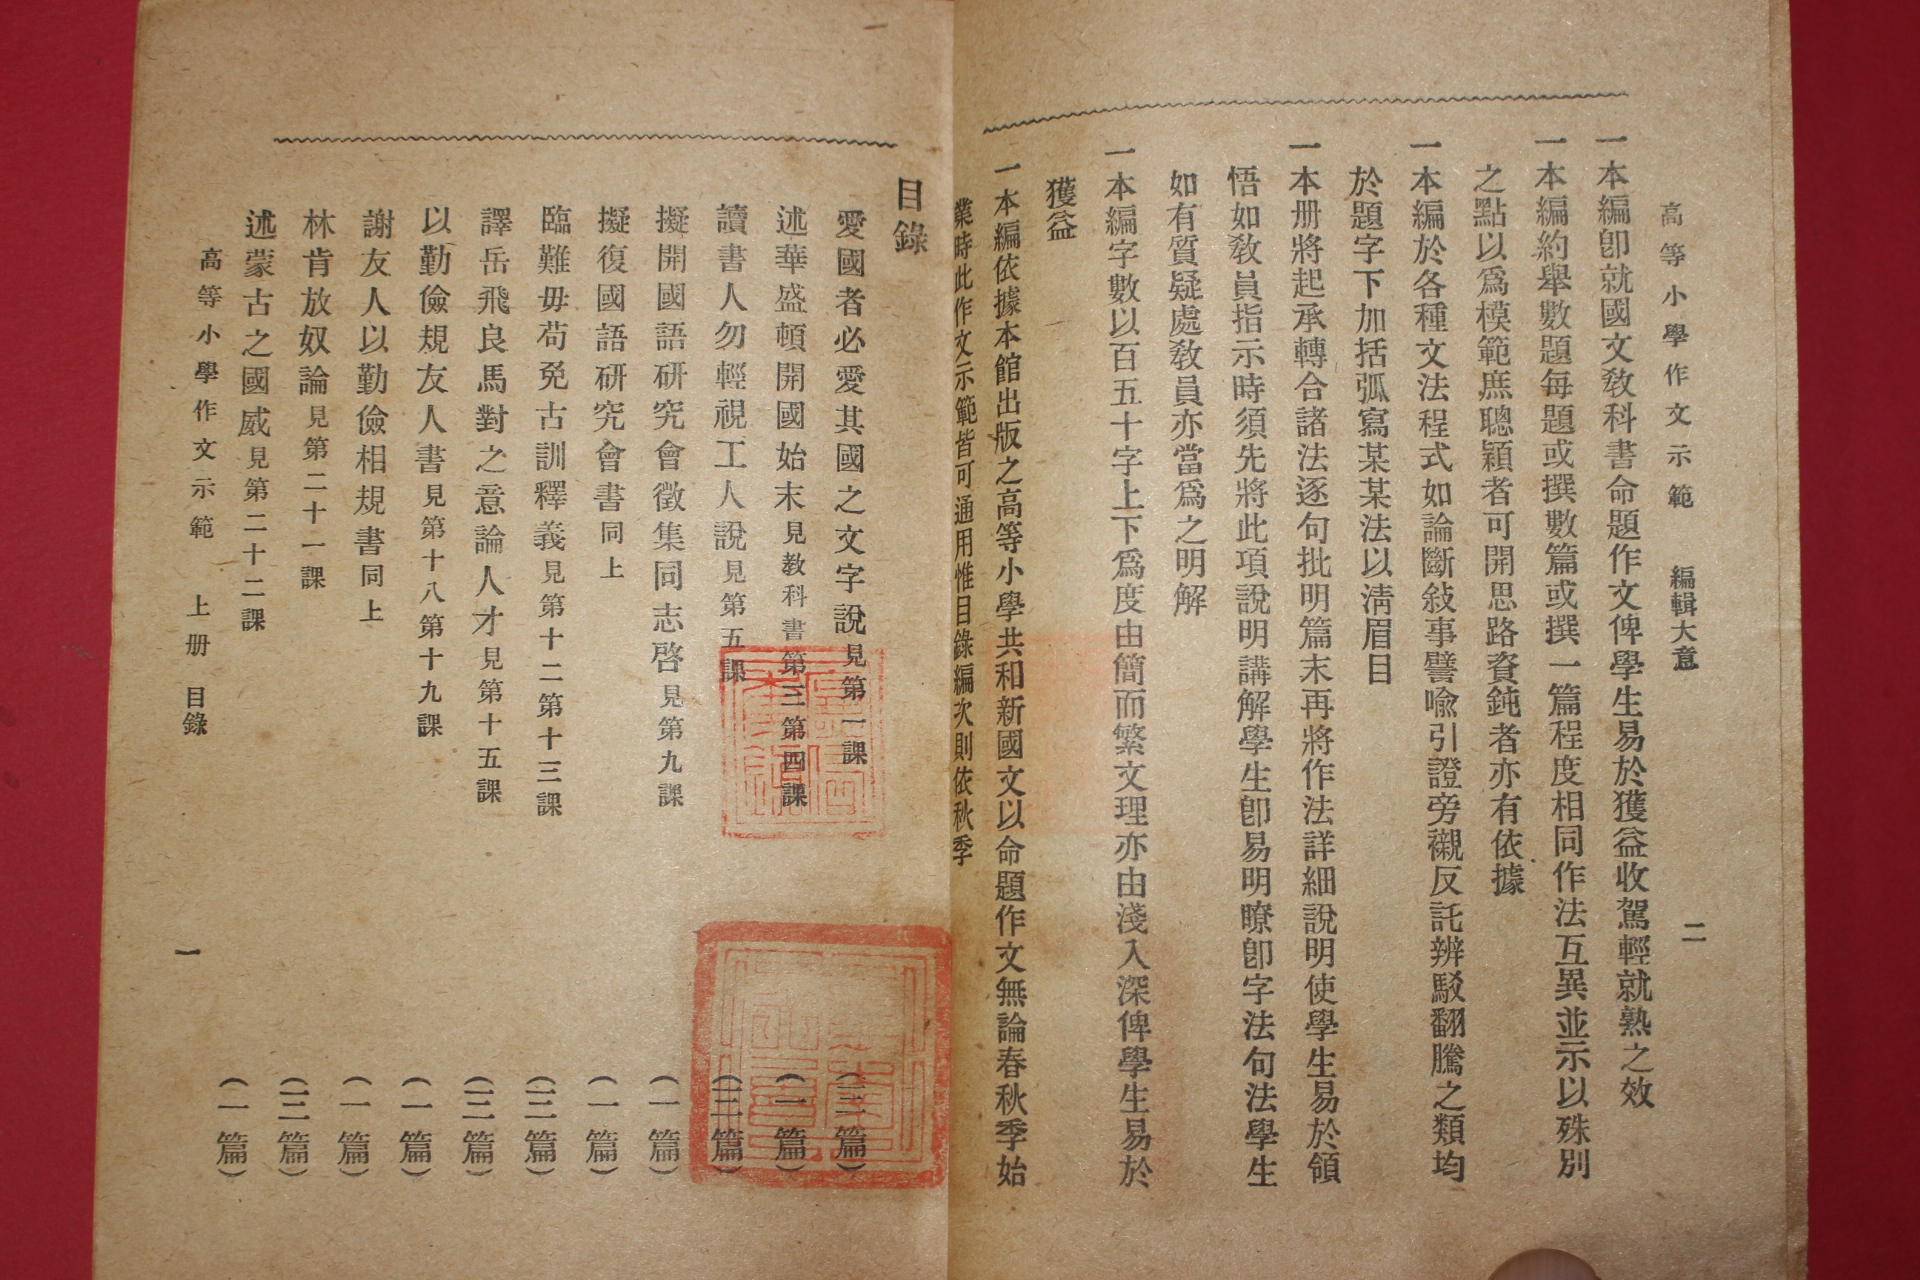 高等小學作文示範　編輯大意　二
一本編卽就國文敎科書命題作文俾學生易於獲益收駕輕就熟之效
一本編約舉數題每題或撰數篇或撰一篇程度相同作法互異並示以殊別
之點以爲模範庶聰穎者可開思路資鈍者亦有依據
一本編於各種文法程式如論斷敍事譬喩引證旁襯反託辨駁翻騰之類均
於題字下加括弧寫某某法以淸眉目
一本册將起承轉合諸法逐句批明篇末再將作法詳細說明使學生易於領
悟如敎員指示時須先將此項說明講解學生卽易明瞭卽字法句法學生
如有質疑處敎員亦當爲之明解
一本編字數以百五十字上下爲度由簡而繁文理亦由淺入深俾學生易於
獲益
一本編依據本館出版之高等小學共和新國文以命題作文無論春秋季始
業時此作文示範皆可通用惟目錄編次則依秋季
目錄
愛國者必愛其國之文字說見第一課（三篇）
述華盛頓開國始末見教科書第三第四課（一篇）
讀書人勿輕視工人說見第五課（三篇）
擬開國語研究會徵集同志啓見第九課（一篇）
擬復國語研究會書同上（一篇）
臨難毋苟免古訓釋義見第十二第十三課（三篇）
譯岳飛良馬對之意論人才見第十五課（三篇）
以勤儉規友人書見第十八第十九課（一篇）
謝友人以勤儉相規書同上（一篇）
林肯放奴論見第二十一課（三篇）
述蒙古之國威見第二十二課（一篇）
高等小學作文示範　上册　目錄　一